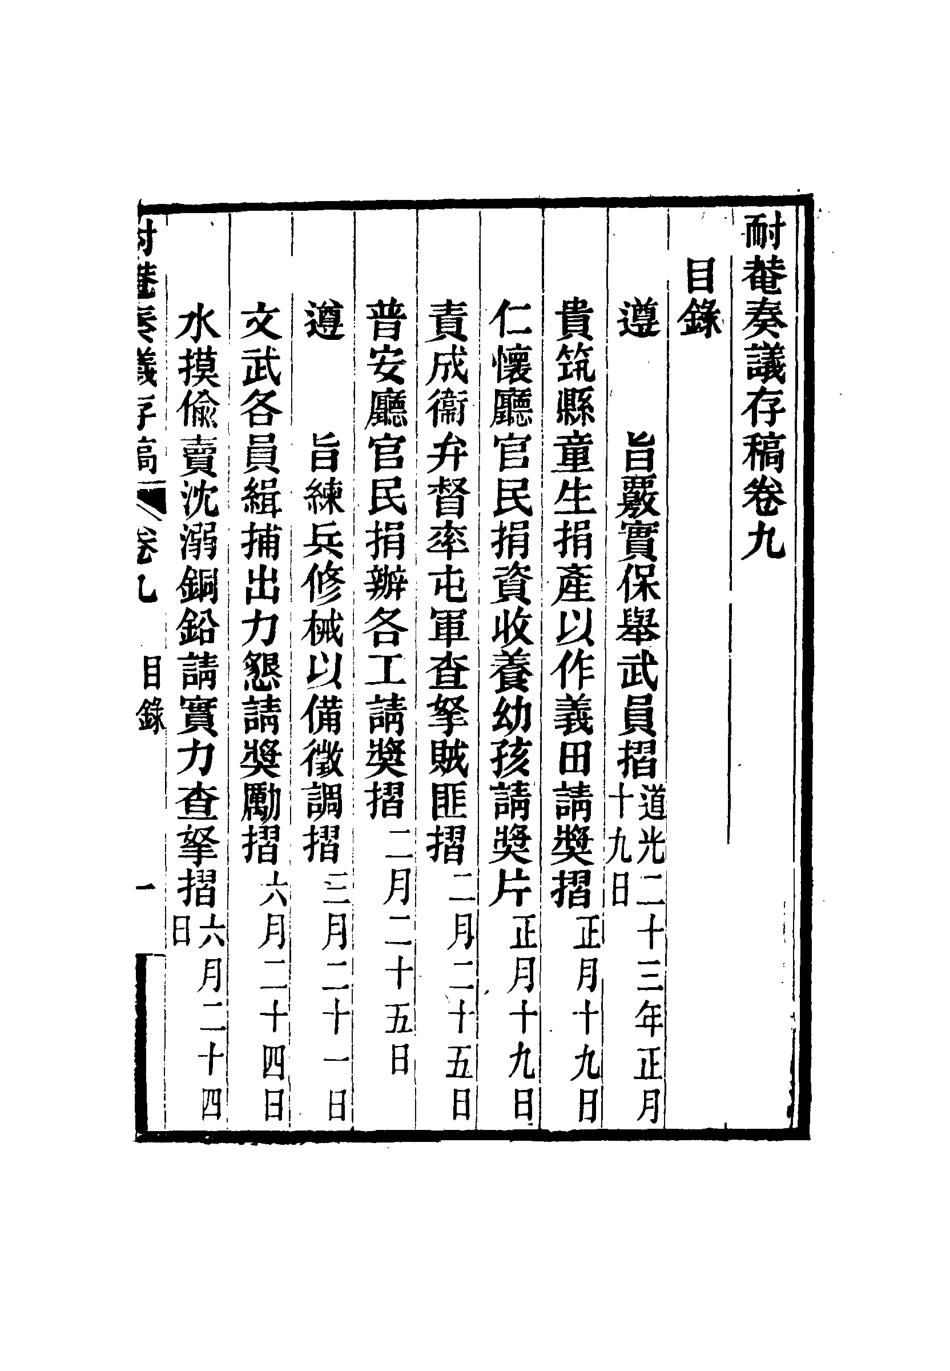 耐菴奏議存稿卷九
目錄
遵　旨覈實保舉武員摺道光二十三年正月十九日
貴筑縣童生捐產以作義田請獎摺正月十九日
仁懷廳官民捐資收養幼孩請獎片正月十九日
責成衞弁督率屯軍查拏賊匪摺二月二十五日
普安廳官民捐辦各工請獎摺二月二十五日
遵　旨練兵修械以備徵調摺三月二十一日
文武各員緝捕出力懇請獎勵摺六月二十四日
水摸偷賣沈溺銅鉛請實力查拏摺六月二十四日
耐菴奏議存稿　卷九　目錄　一